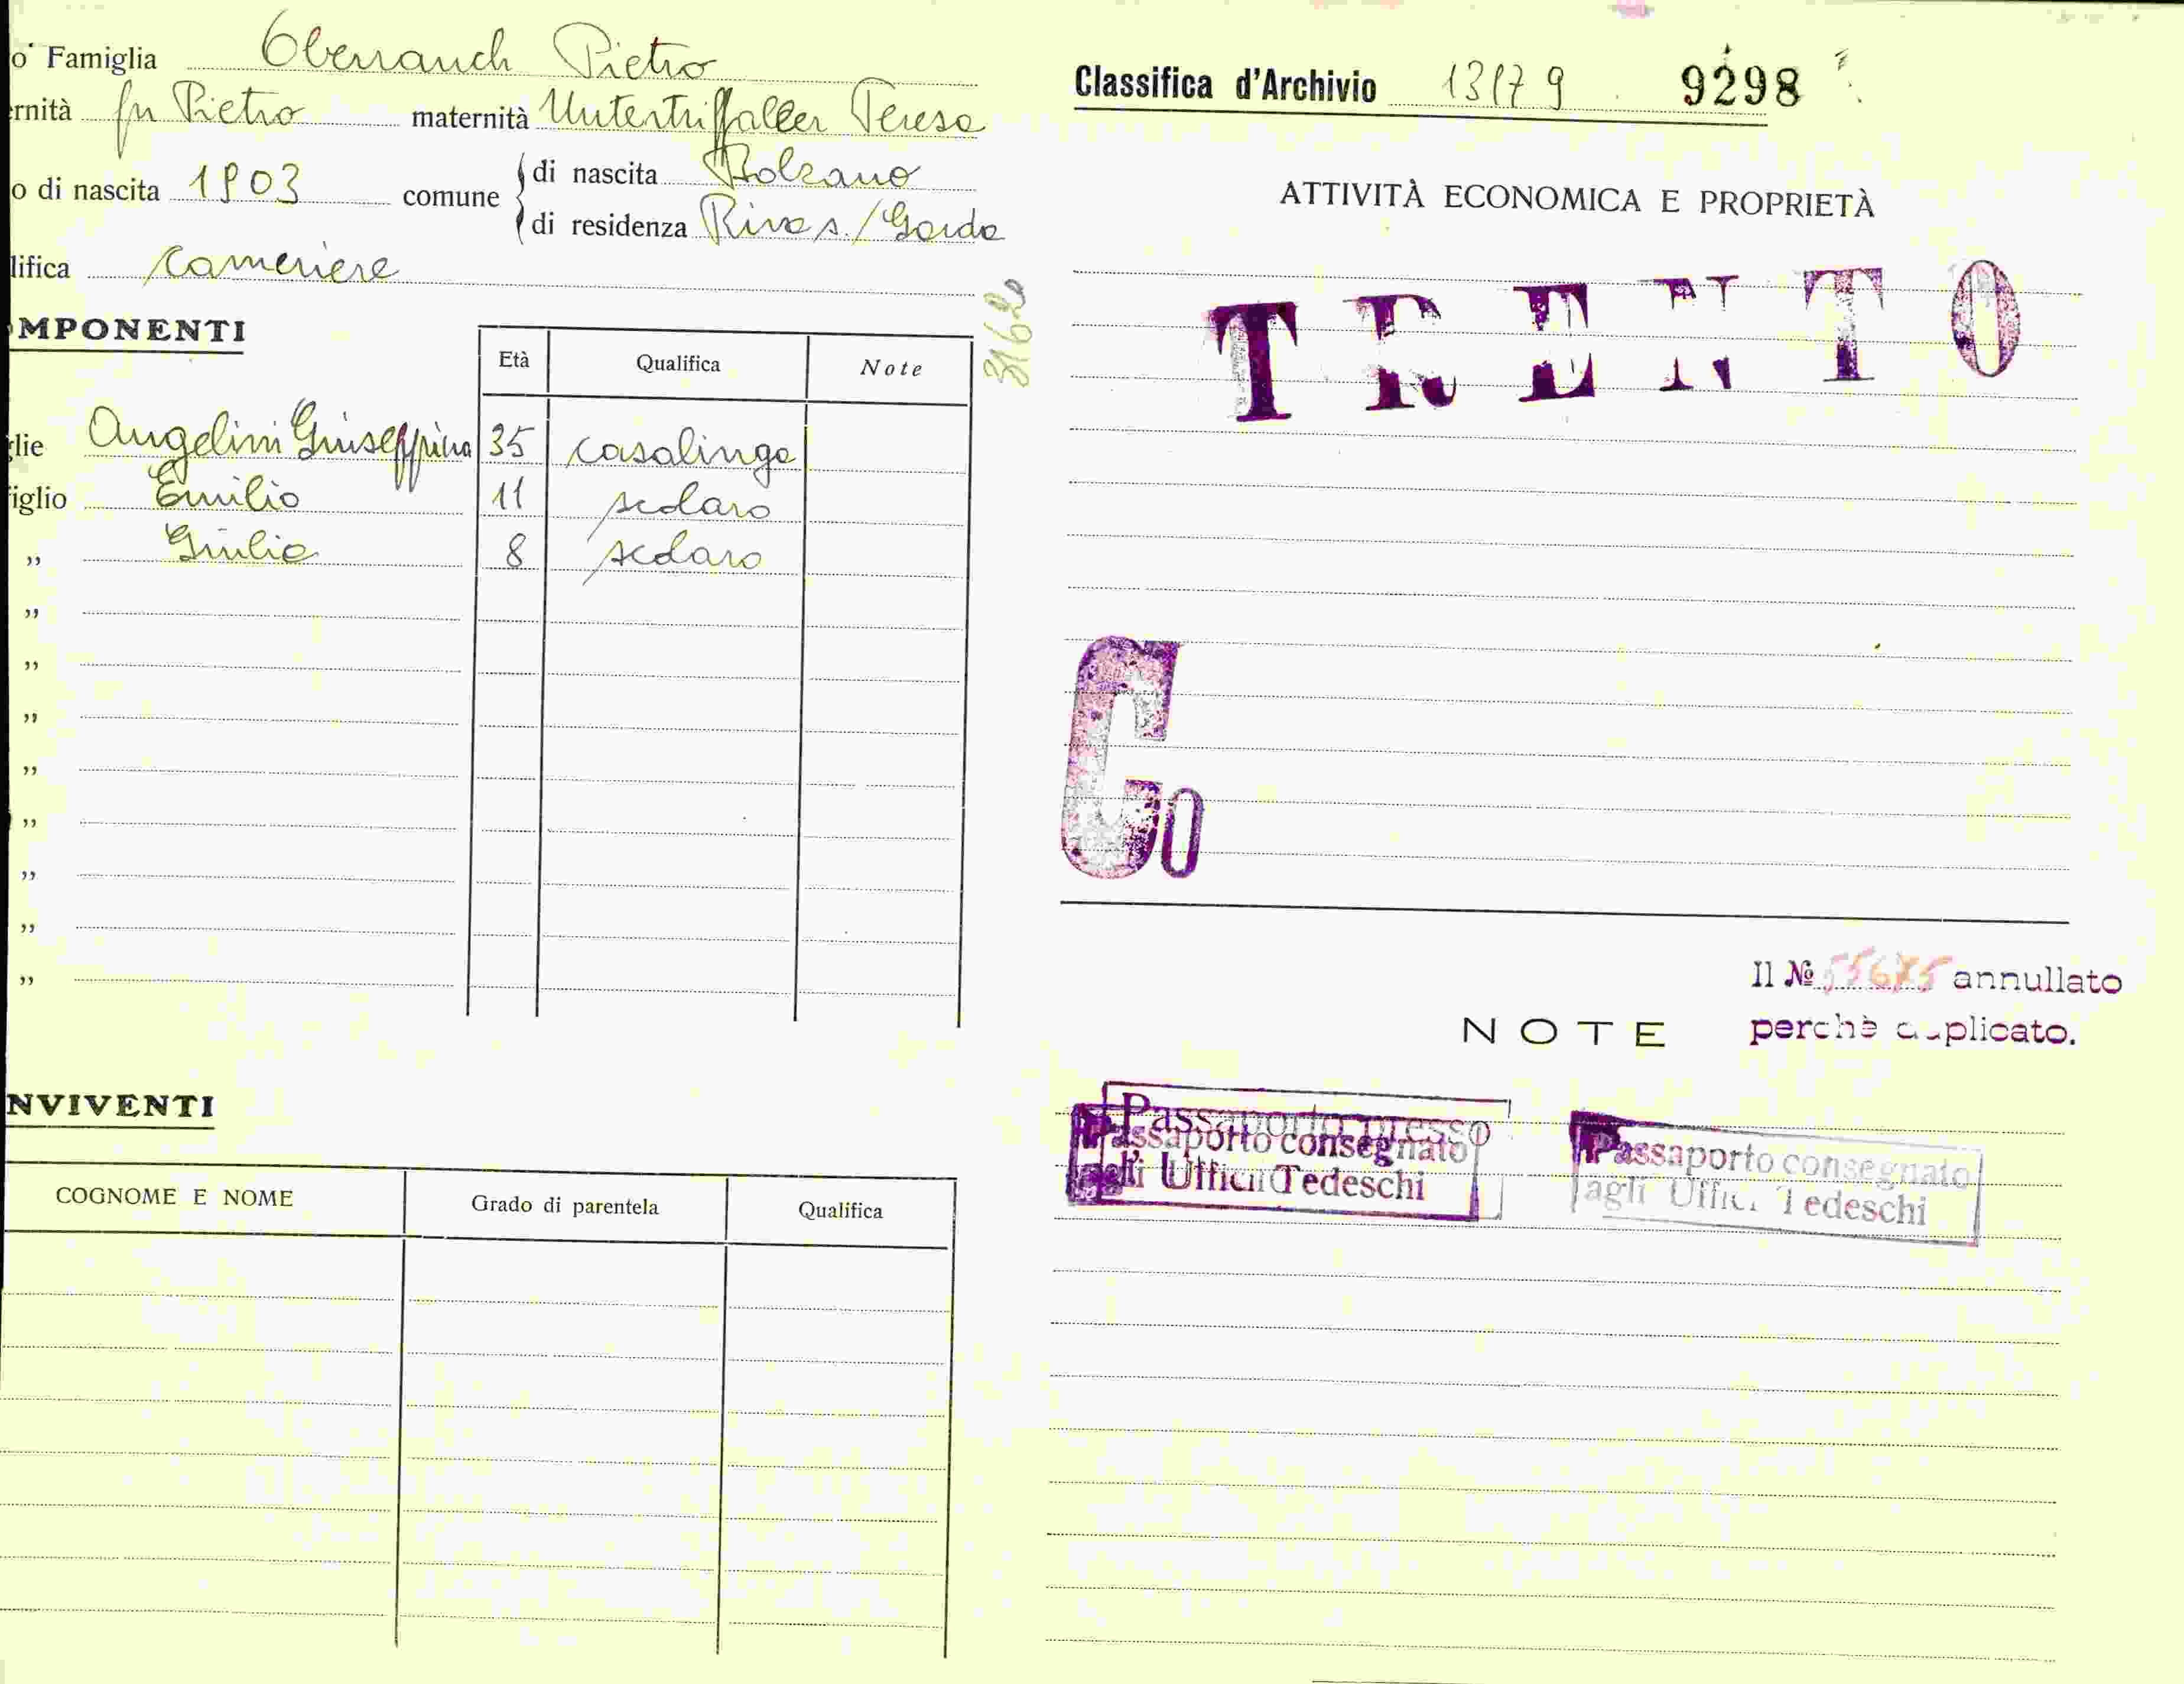 o' Famiglia Oberrauch Pietro
ernità fu Pietro maternità Untertriffaller Teresa
o di nascita 1903 comune di nascita Bolzano
di residenza Riva s./Garda
lifica cameriere
31620
OMPONENTI
Età Qualifica Note
glie Angelini Giuseppina 35 casalinga
iglio Emilio 11 scolaro
„ Giulio 8 scolaro
„
„
„
„
„
„
„
„
NVIVENTI
COGNOME E NOME Grado di parentela Qualifica
Classifica d'Archivio 13179 9298
ATTIVITÀ ECONOMICA E PROPRIETÀ
TRENTO
Co
Il № 55675 annullato
perchè duplicato.
NOTE
Passaporto presso
Passaporto consegnato
agli Uffici Tedeschi
Passaporto consegnato
agli Uffici Tedeschi